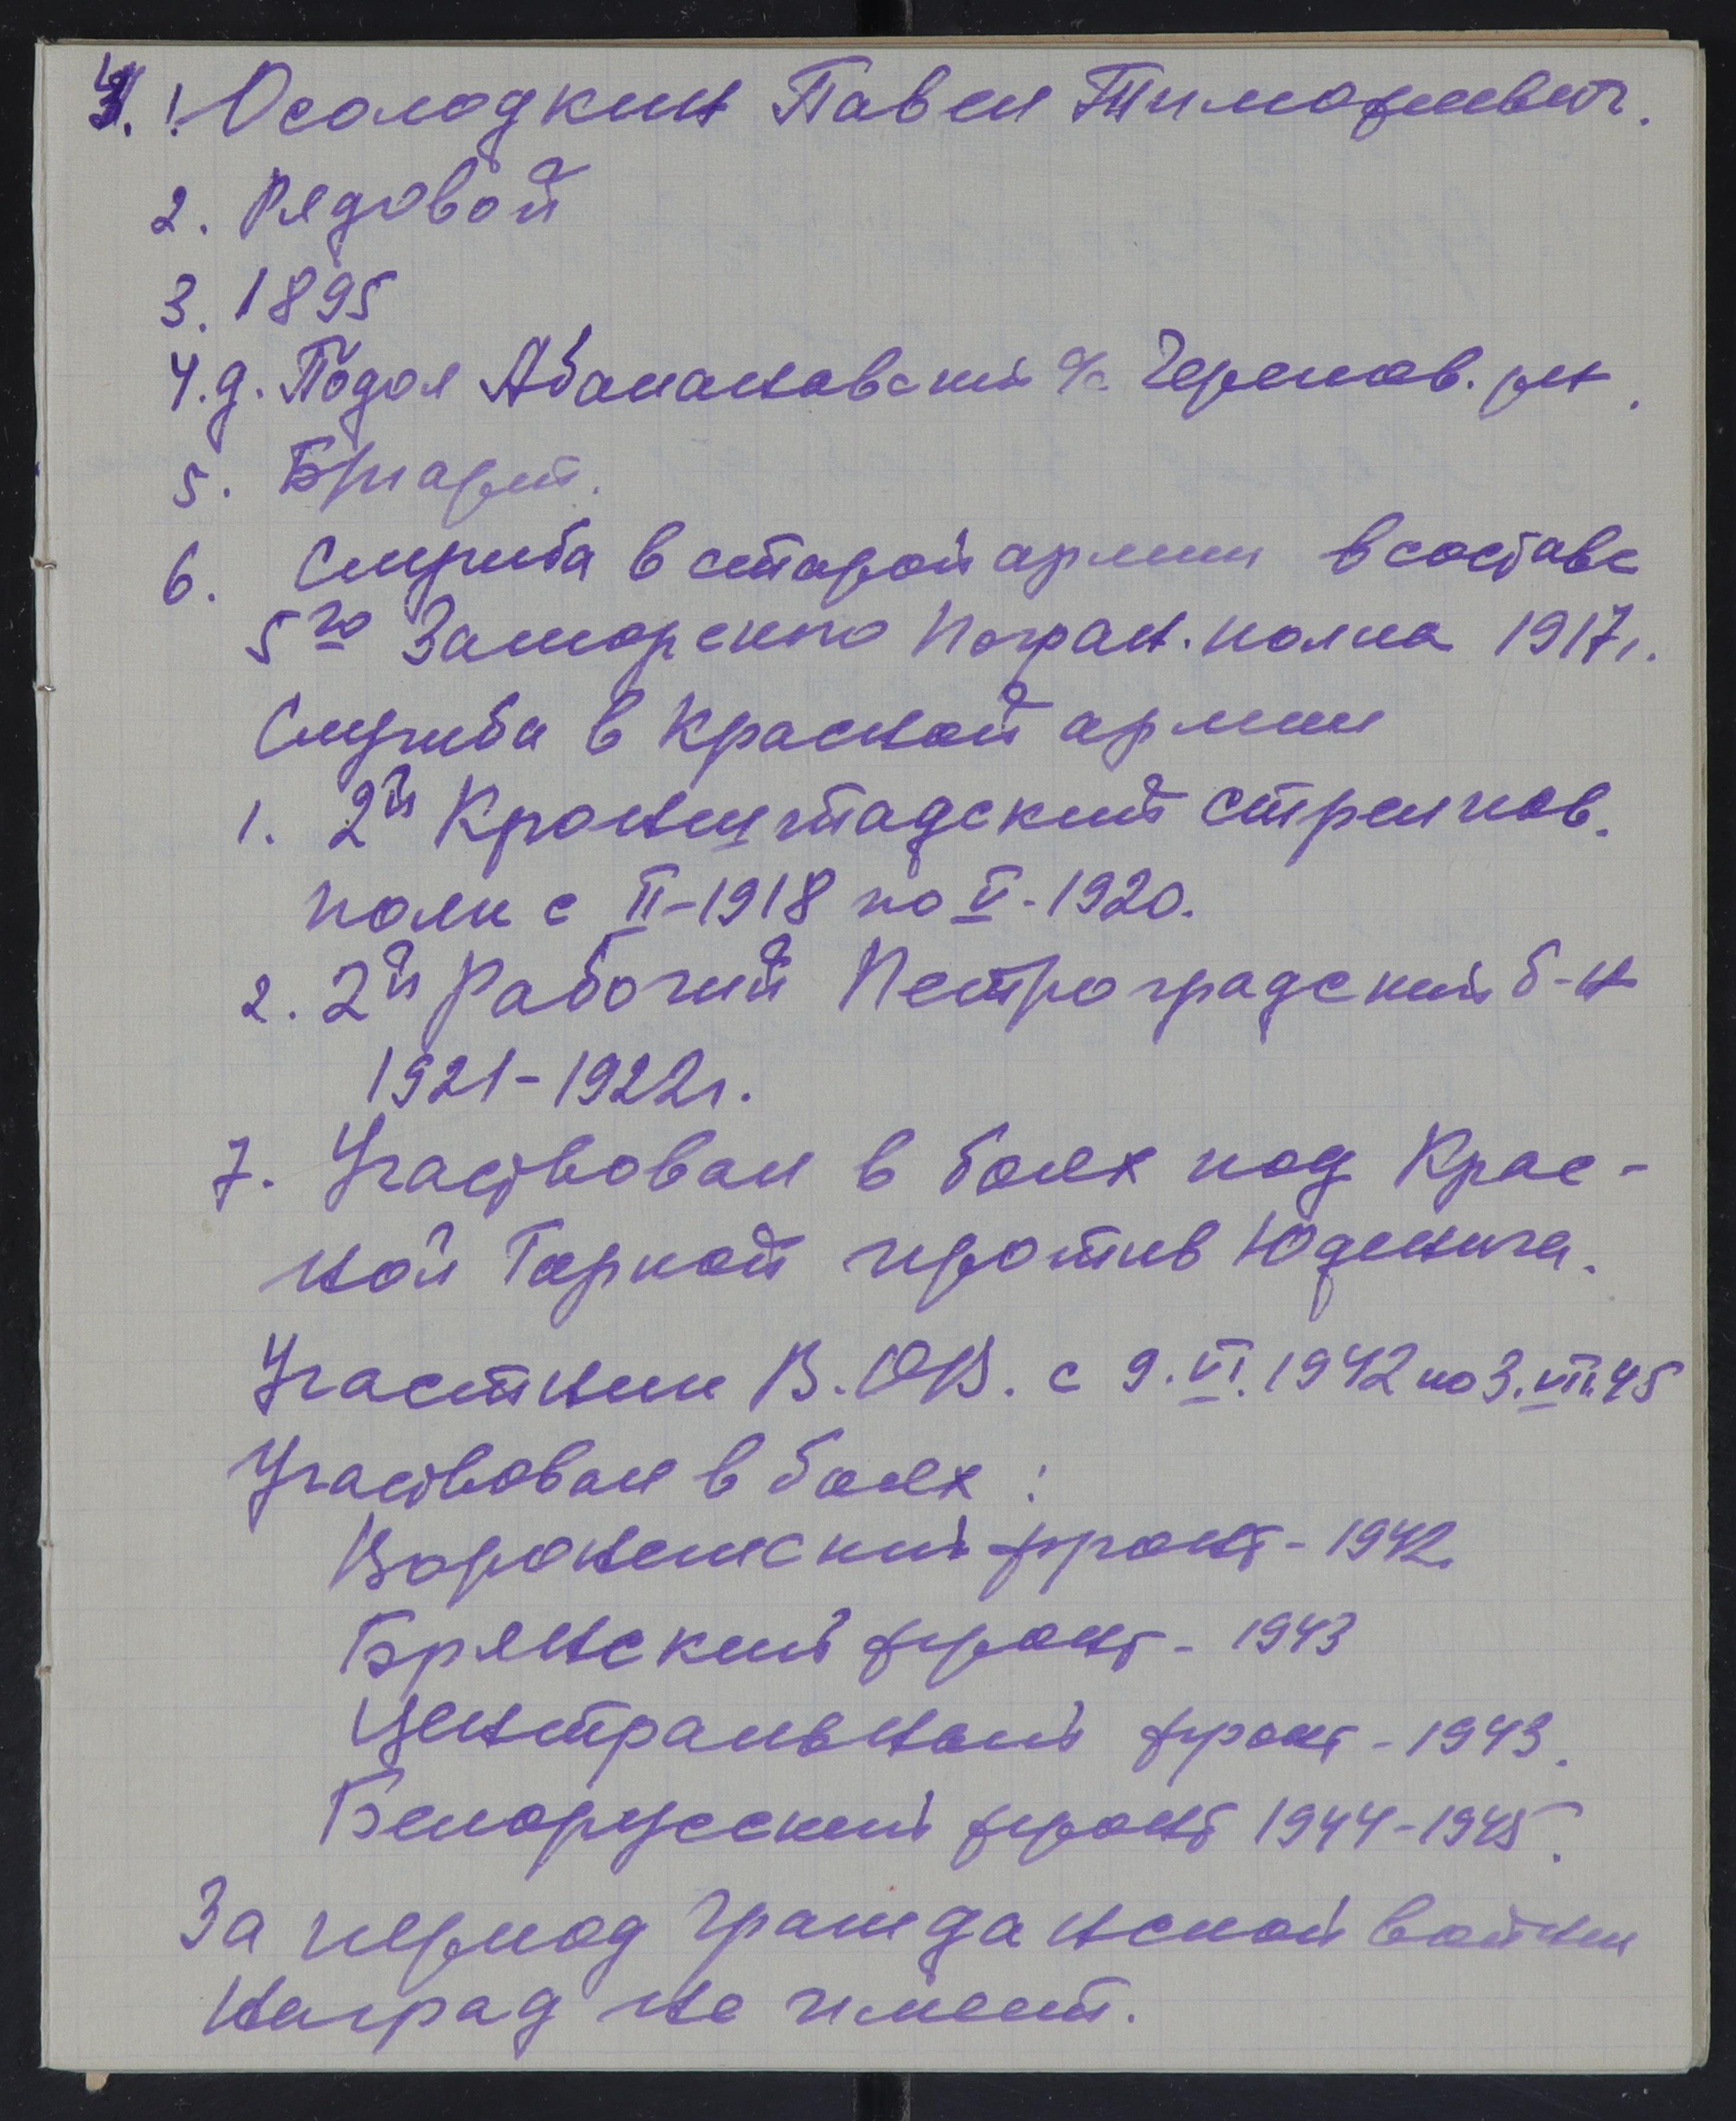 4. 1. Осолодкин Павел Тимофеевич.
2. Рядовой
3. 1895
4. д. Подол Абакановский с/с Черепов. р-н.
5.
6. Служба в старой армии в составе
5го Заморского Погран. полка 1917 г.
Служба в Красной армии
1. 2й Кронштадский стрелков.
полк с II-1918 по V-1920.
2. 2й Рабочий Петроградский б-н
1921-1922 г.
7. Участвовал в боях под Крас-
ной Горкой против Юденича.
Участник В.О.В. с 9.VI.1942 по 3.VIII.45
Участвовал в боях:
Воронежский фронт - 1942
Брянский фронт - 1943
Центральный фронт - 1943.
Белорусский фронт 1944-1945.
За период гражданской войны
наград не имеет.